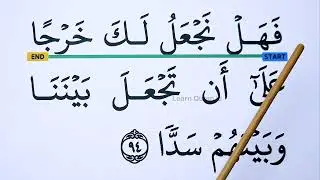 فَهَلْ نَجْعَلُ لَكَ خَرْجًا
END START
عَلَىٰٓ أَن تَجْعَلَ بَيْنَنَا
Learn Qu
وَبَيْنَهُمْ سَدًّا ﴿٩٤﴾